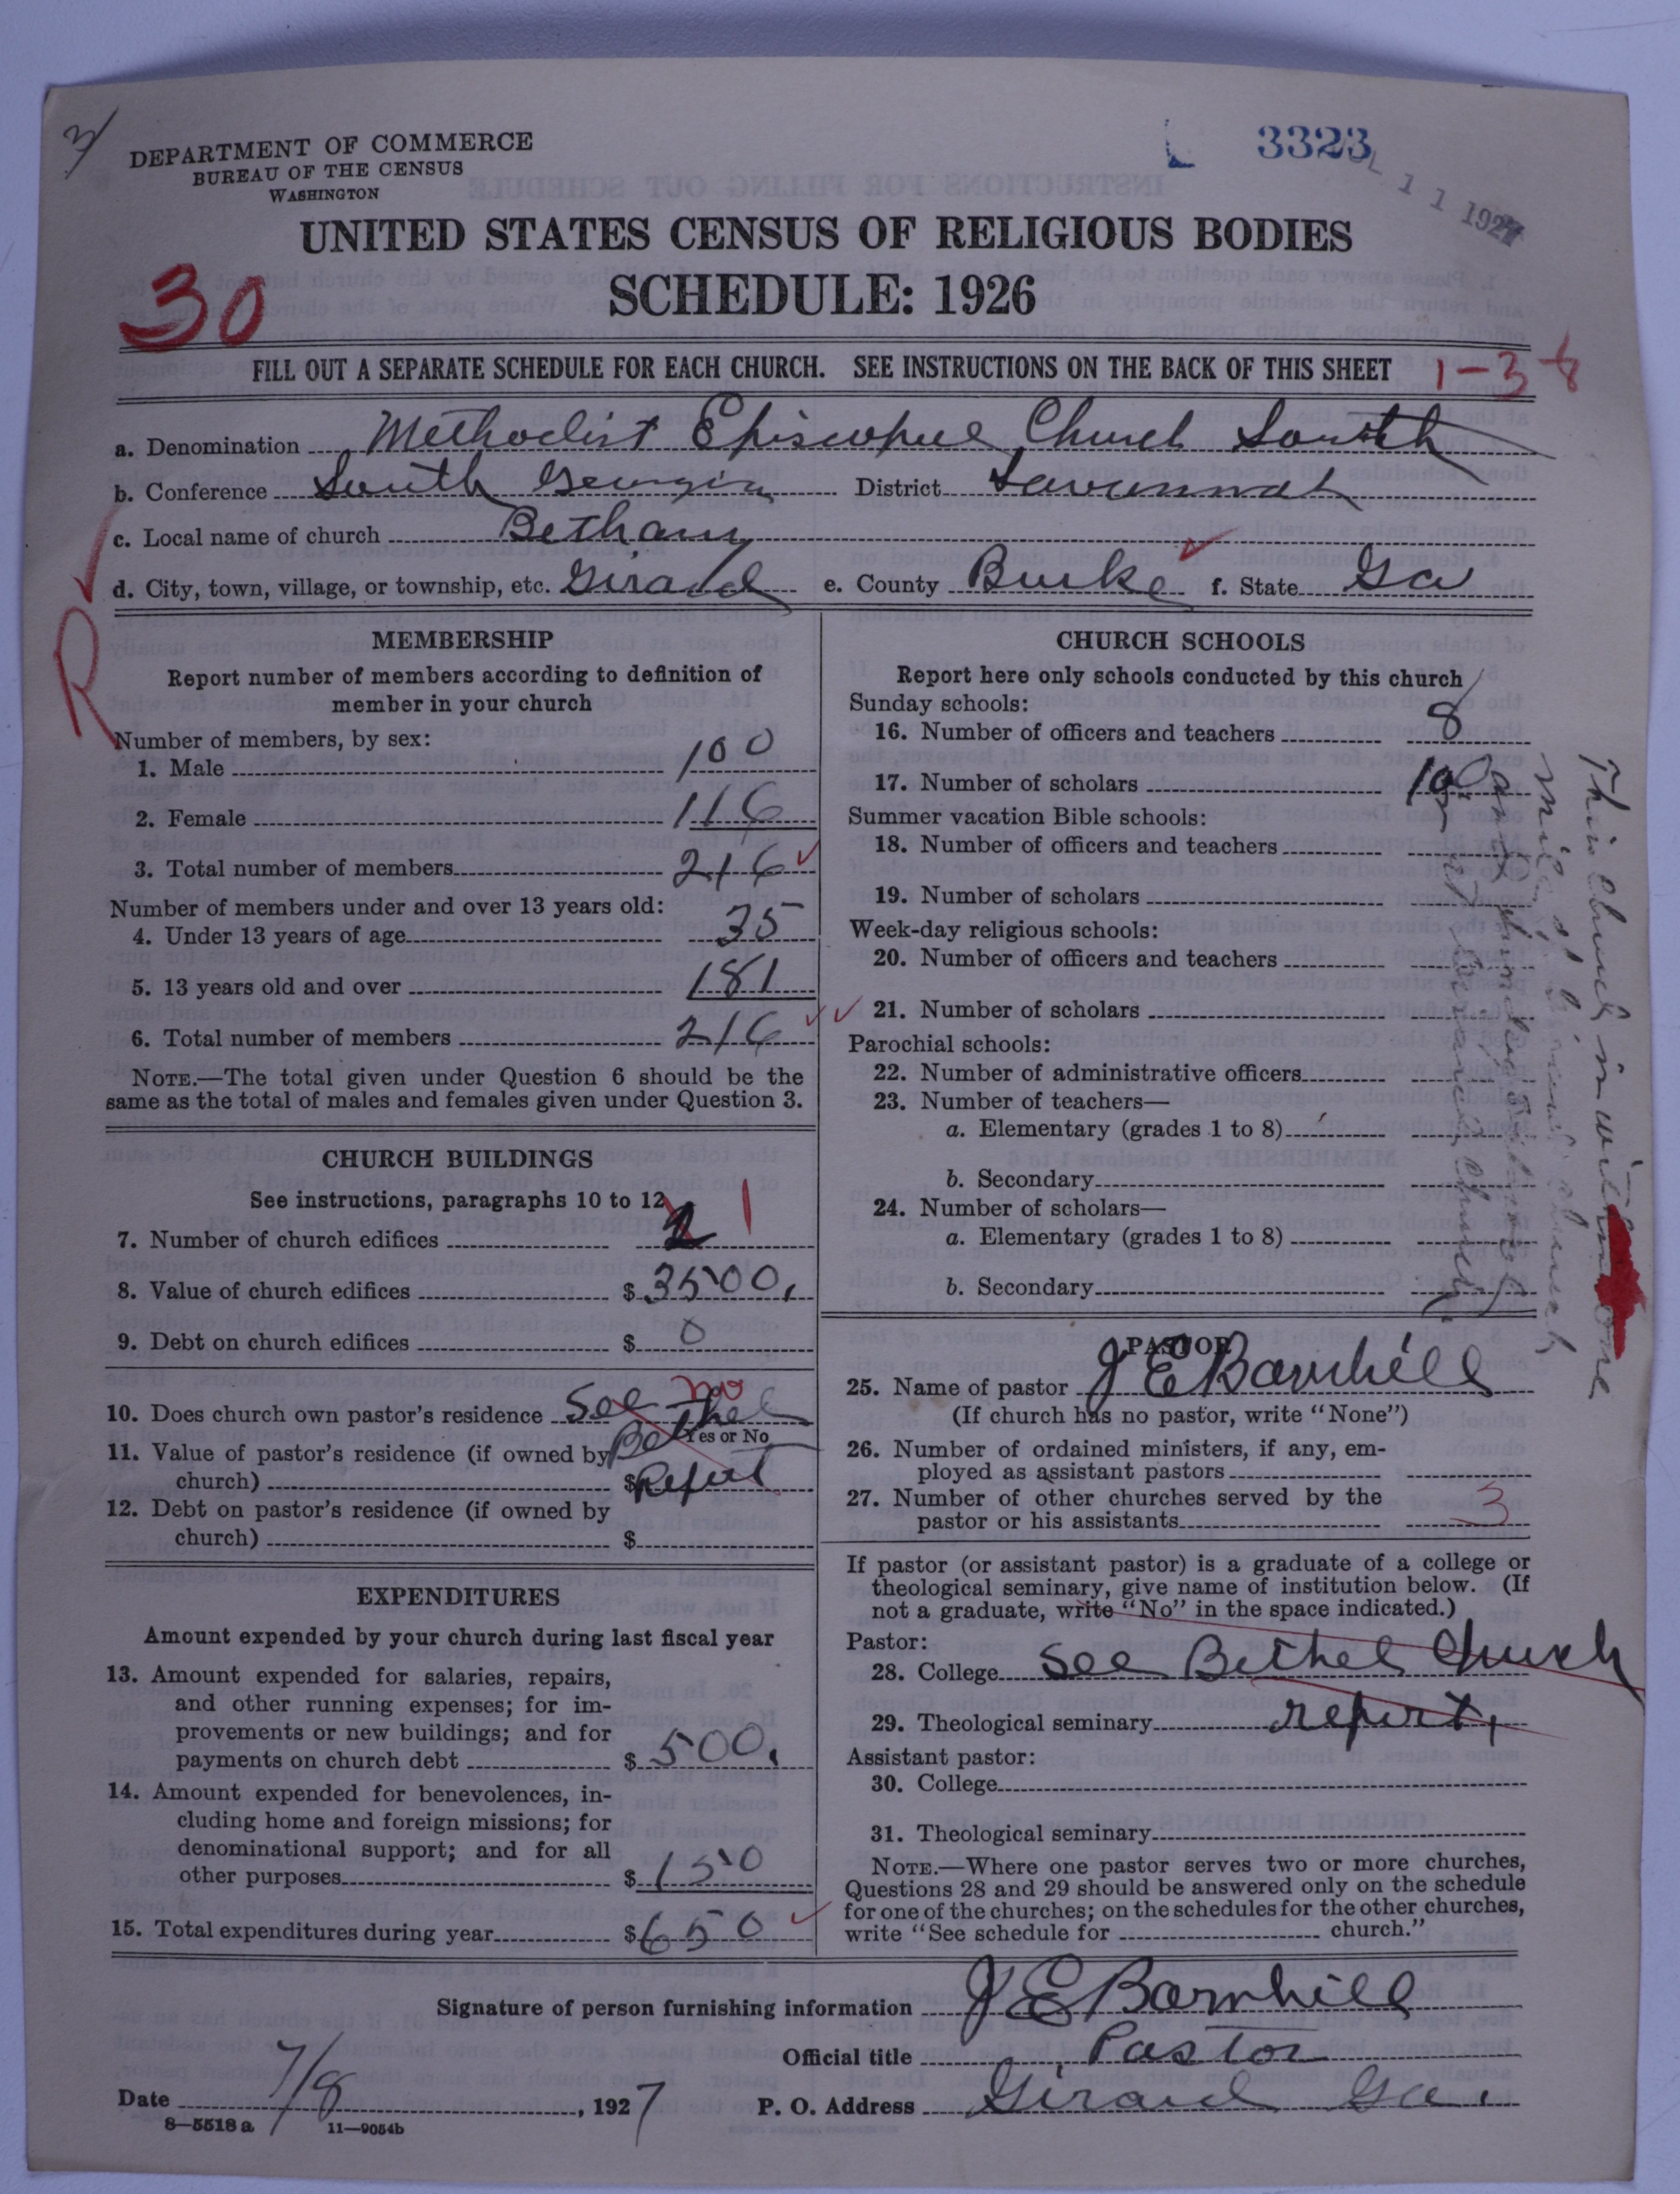 3
DEPARTMENT OF COMMERCE
BUREAU OF THE CENSUS
WASHINGTON
3323
JUL 11 1927
UNITED STATES CENSUS OF RELIGIOUS BODIES
SCHEDULE: 1926
30
FILL OUT A SEPARATE SCHEDULE FOR EACH CHURCH. SEE INSTRUCTIONS ON THE BACK OF THIS SHEET
1-3-8
a. Denomination Methodist Episcopal Church South
b. Conference South Georgia District Savannah
c. Local name of church Bethany
d. City, town, village, or township, etc. Girard e. County Burke f. State Ga
R
MEMBERSHIP
Report number of members according to definition of
member in your church
Number of members, by sex:
1. Male 100
2. Female 116
3. Total number of members 216
Number of members under and over 13 years old:
4. Under 13 years of age 35
5. 13 years old and over 181
6. Total number of members 216
NOTE.—The total given under Question 6 should be the
same as the total of males and females given under Question 3.
CHURCH BUILDINGS
See instructions, paragraphs 10 to 12
7. Number of church edifices 1
8. Value of church edifices $3500.
9. Debt on church edifices $ 0
10. Does church own pastor's residence See Bethel no
Yes or No
11. Value of pastor's residence (if owned by
church) $ Report
12. Debt on pastor's residence (if owned by
church) $
EXPENDITURES
Amount expended by your church during last fiscal year
13. Amount expended for salaries, repairs,
and other running expenses; for im-
provements or new buildings; and for
payments on church debt $500.
14. Amount expended for benevolences, in-
cluding home and foreign missions; for
denominational support; and for all
other purposes $150
15. Total expenditures during year $650
CHURCH SCHOOLS
Report here only schools conducted by this church
Sunday schools:
16. Number of officers and teachers 8
17. Number of scholars 100
Summer vacation Bible schools:
18. Number of officers and teachers
19. Number of scholars
Week-day religious schools:
20. Number of officers and teachers
21. Number of scholars
Parochial schools:
22. Number of administrative officers
23. Number of teachers—
a. Elementary (grades 1 to 8)
b. Secondary
24. Number of scholars—
a. Elementary (grades 1 to 8)
b. Secondary
This church is within one
mile of
and Sunday School
at church
PASTOR
25. Name of pastor J E Barnhill
(If church has no pastor, write "None")
26. Number of ordained ministers, if any, em-
ployed as assistant pastors
27. Number of other churches served by the
pastor or his assistants 3
If pastor (or assistant pastor) is a graduate of a college or
theological seminary, give name of institution below. (If
not a graduate, write "No" in the space indicated.)
Pastor:
28. College See Bethel Church
29. Theological seminary report,
Assistant pastor:
30. College
31. Theological seminary
NOTE.—Where one pastor serves two or more churches,
Questions 28 and 29 should be answered only on the schedule
for one of the churches; on the schedules for the other churches,
write "See schedule for church."
Signature of person furnishing information J E Barnhill
Official title Pastor
Date 7/8, 1927 P. O. Address Girard Ga.
8—5518 a 11—9054b